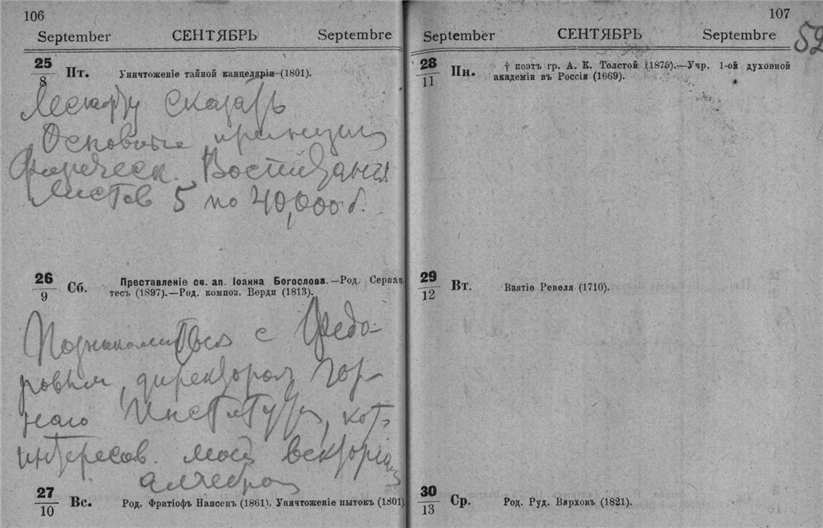 106
September СЕНТЯБРЬ Septembre
25
8
Пт.
Уничтоженіе тайной канцеляріи (1801).
сказать
Основные принципы
Физическ. Воспитания
листов 5 по 40,000 б.
26
9
Сб.
Преставленіе св. ап. Іоанна Богослова.—Род. Серван
тесъ (1897).—Род. композ. Верди (1813).
Познакомиться с Федо-
ровым, директором Гор-
наго Института, кот.
интересов. моей векторіал
алгеброй
27
10
Вс.
Род. Фритіофъ Нансенъ (1861). Уничтоженіе пытокъ (1801)
107
September СЕНТЯБРЬ Septembre
52
28
11
Пн.
† поэтъ гр. А. К. Толстой (1875).—Учр. 1-ой духовной
академіи въ Россіи (1669).
29
12
Вт.
Взятіе Ревеля (1710).
30
13
Ср.
Род. Руд. Вирховъ (1821).